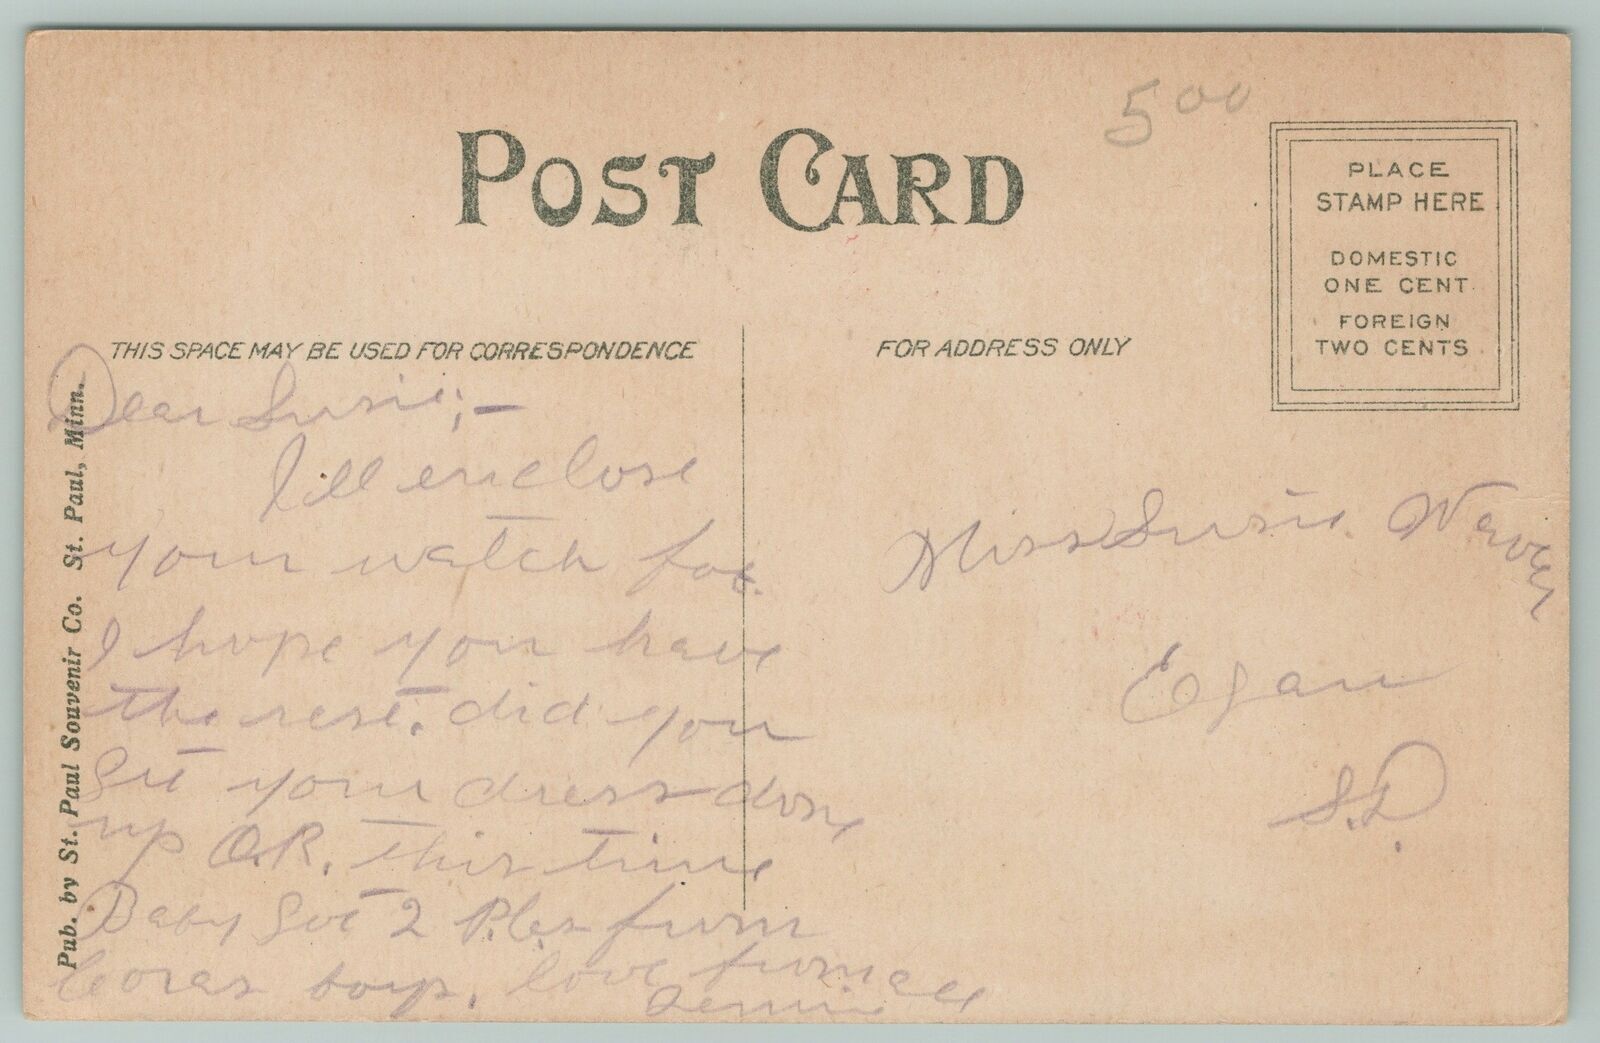 5 00
POST CARD
PLACE
STAMP HERE
DOMESTIC
ONE CENT
FOREIGN
TWO CENTS
THIS SPACE MAY BE USED FOR CORRESPONDENCE
FOR ADDRESS ONLY
Pub. by St. Paul Souvenir Co. St. Paul, Minn.
Dear Susie;-
I'll enclose
your watch fob.
I hope you have
the rest. did you
get your dress done
up O.K. this time
Baby got 2 P.C.s from
Coras boys. love from all
Jennie
Miss Susie Weaver
Egan
S.D.